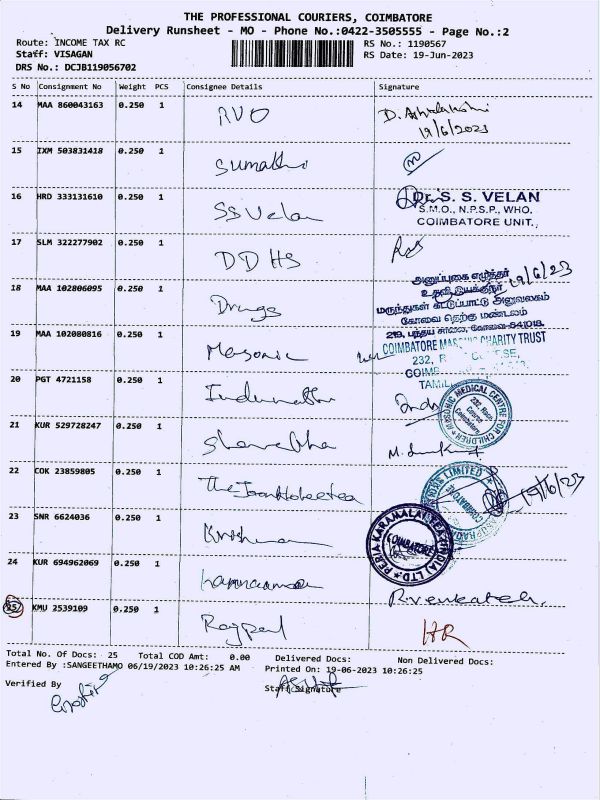 THE PROFESSIONAL COURIERS, COIMBATORE
Delivery Runsheet - MO - Phone No.:0422-3505555 - Page No.:2
Route: INCOME TAX RC
RS No.: 1190567
Staff: VISAGAN
RS Date: 19-Jun-2023
DRS No.: DCJB119056702
S No Consignment No Weight PCS Consignee Details Signature
14 MAA 860043163 0.250 1 RVO
19/6/2023
15 IXM 503831418 0.250 1 Sumathi
16 HRD 333131610 0.250 1 SS Velan
Dr. S. S. VELAN
S.M.O., N.P.S.P., WHO.
COIMBATORE UNIT.,
17 SLM 322277902 0.250 1 DDHS
அனுப்புகை எழுத்தர் 19/6/23
18 MAA 102806095 0.250 1 Drugs
மருந்துகள் கட்டுப்பாட்டு அலுவலகம்
கோவை தெற்கு மண்டலம்
219, பந்தய சாலை, கோவை-641018.
19 MAA 102080816 0.250 1 Masonic
COIMBATORE MASONIC CHARITY TRUST
232,
20 PGT 4721158 0.250 1
MASONIC MEDICAL CENTRE FOR CHILDREN
232, Race Course Coimbatore
21 KUR 529728247 0.250 1
22 COK 23859805 0.250 1
LIMITED
19/6/23
23 SNR 6624036 0.250 1 Krishna
PERIA KARAMALAI TEA (INDIA) LTD.
COIMBATORE
24 KUR 694962069 0.250 1
R. Venkatesh.
25 KMU 2539109 0.250 1 Rajpal HR
Total No. Of Docs: 25 Total COD Amt: 0.00 Delivered Docs: Non Delivered Docs:
Entered By :SANGEETHAMO 06/19/2023 10:26:25 AM Printed On: 19-06-2023 10:26:25
Verified By
Staff Signature